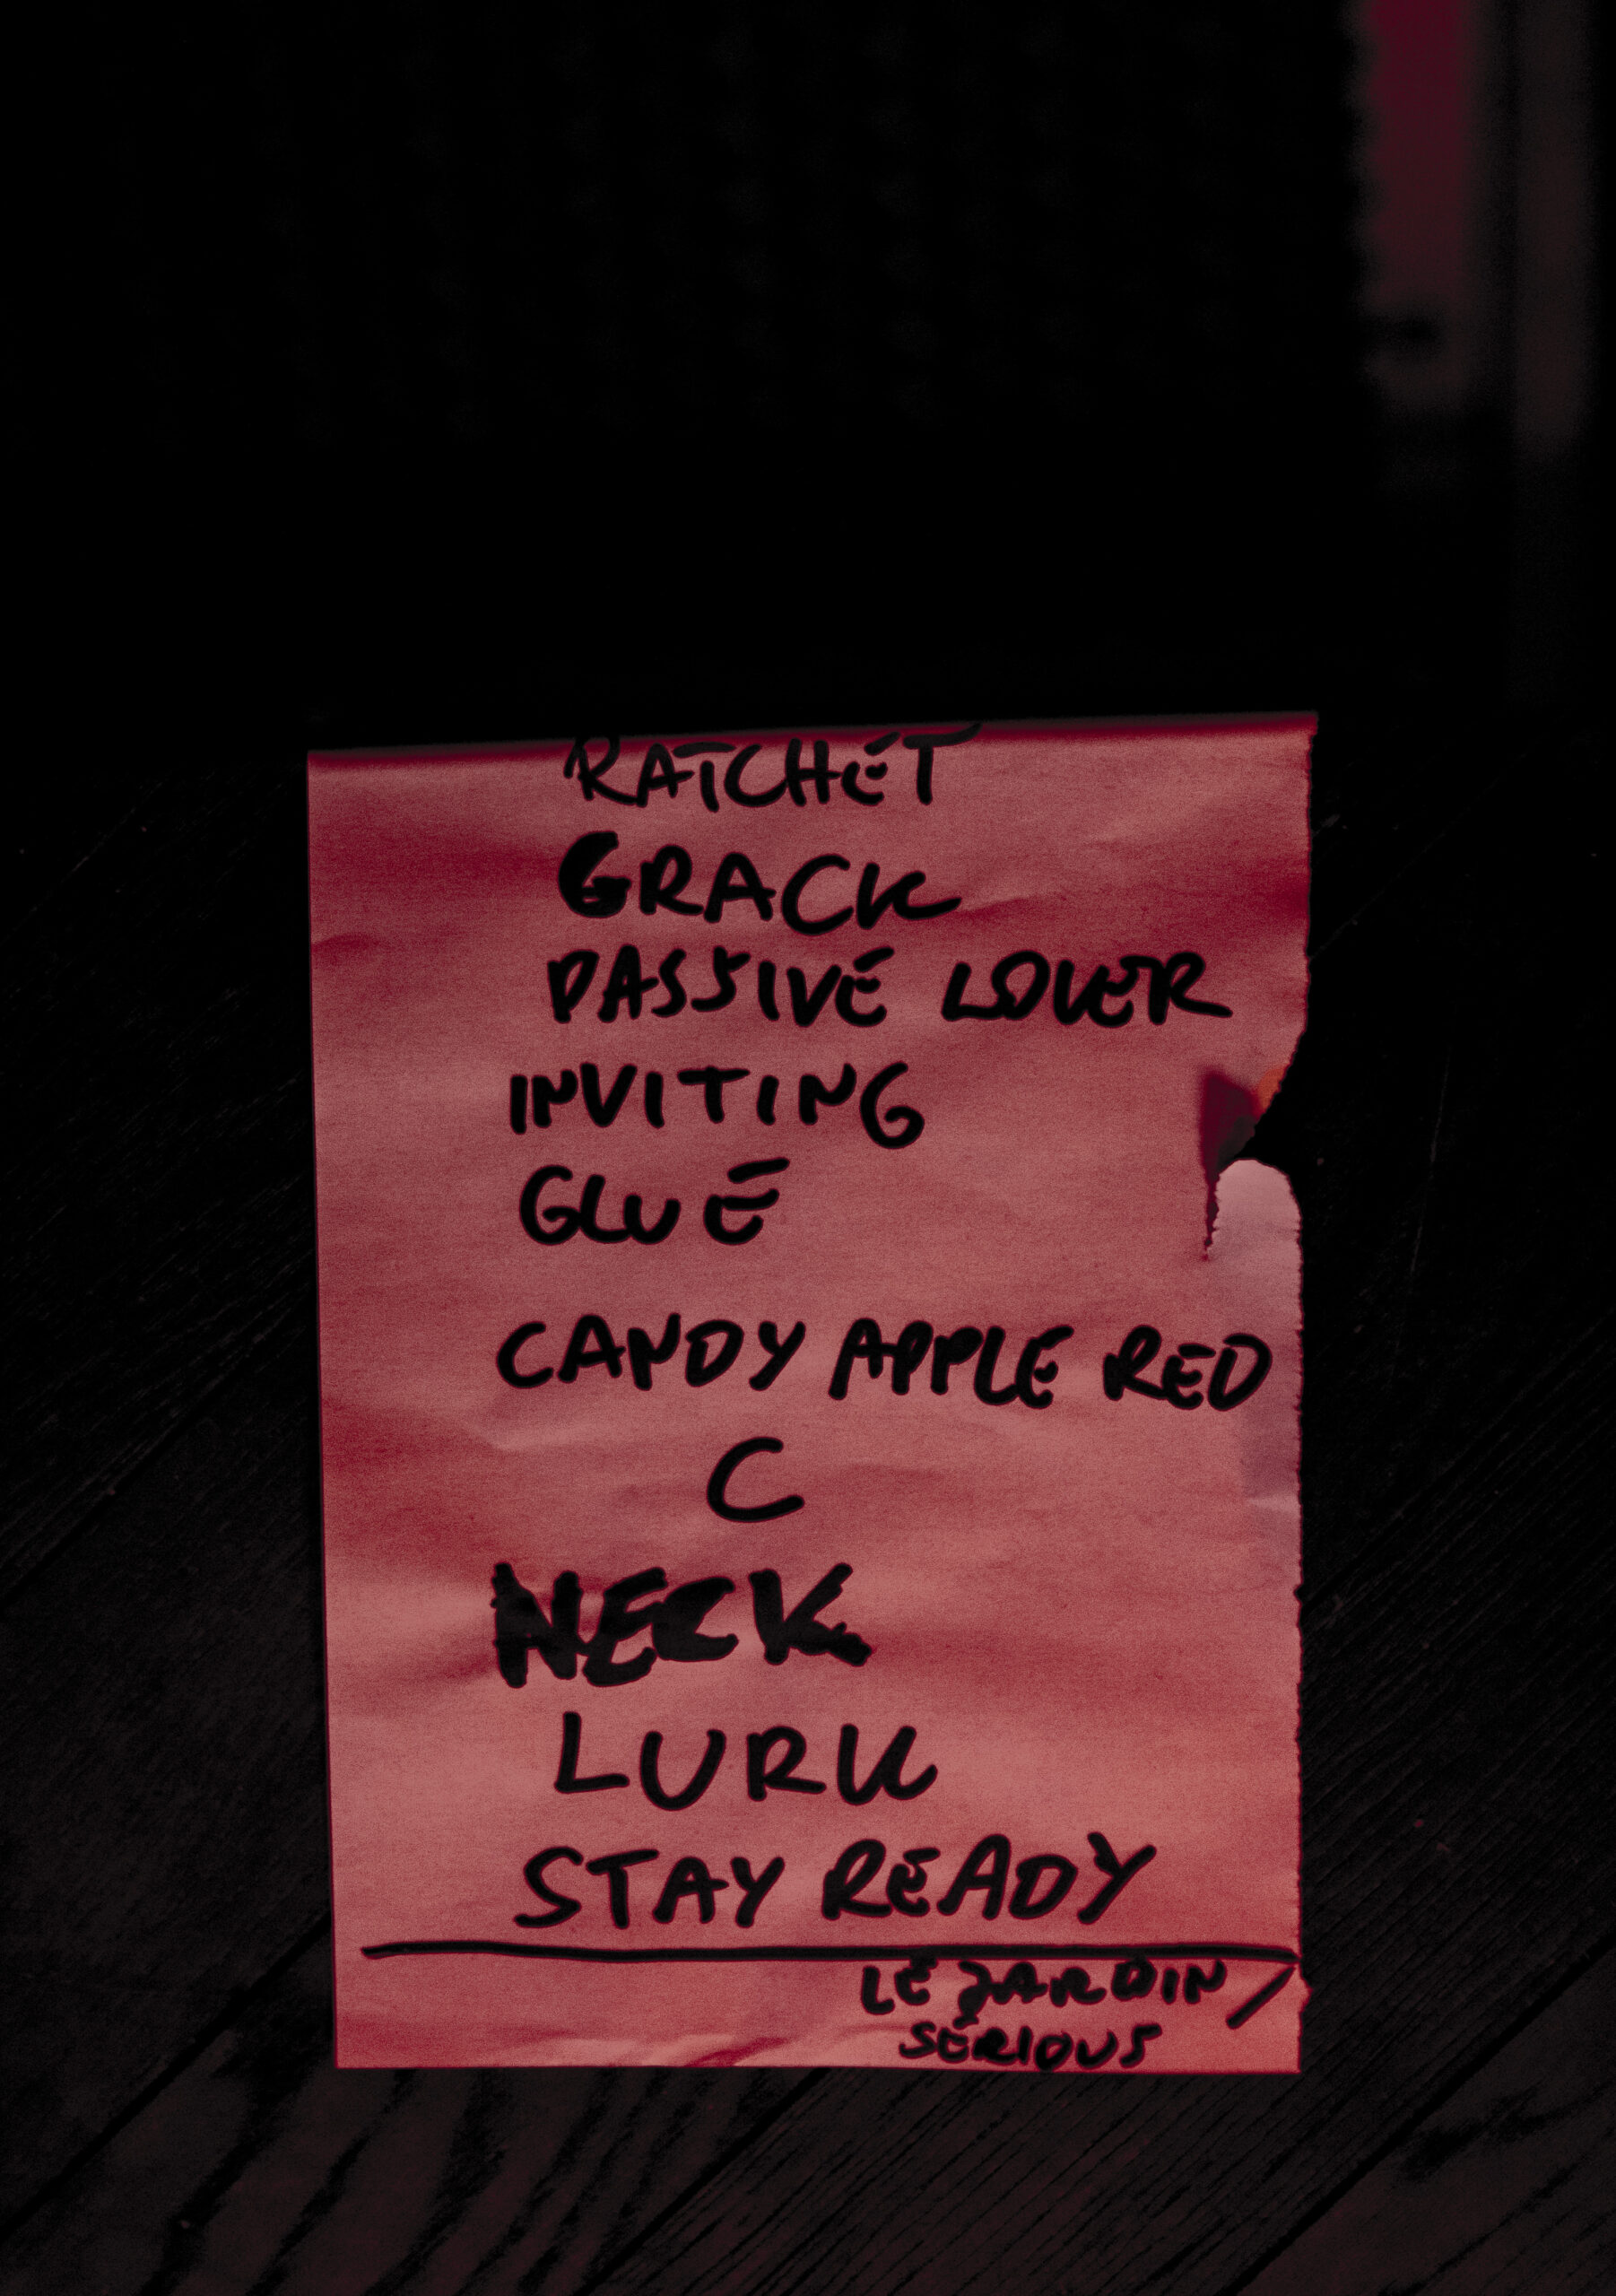 RATCHET
GRACK
PASSIVE LOVER
INVITING
GLUE
CANDY APPLE RED
C
NECK
LURK
STAY READY
LE JARDIN /
SERIOUS